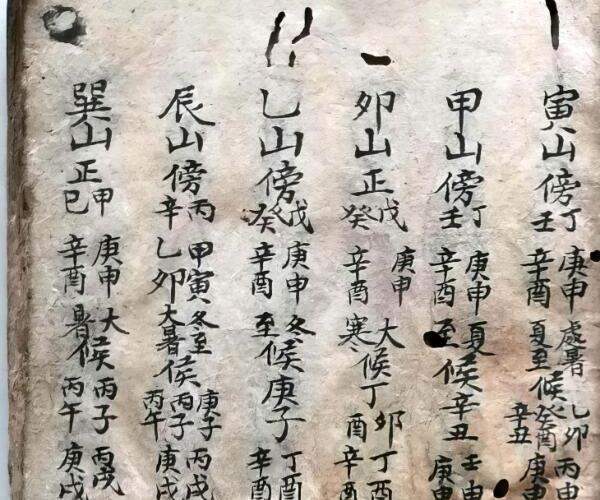 寅山傍丁壬庚申辛酉處暑夏至候乙卯癸酉辛丑丙申庚
甲山傍丁壬庚申辛酉夏至候辛丑壬申庚申
卯山正戊癸庚申辛酉大寒候丁卯酉丁酉辛
乙山傍戊癸庚申辛酉冬至候庚子丁酉辛
辰山傍丙辛甲寅乙卯冬至大暑候庚子丙子丙午丙戌庚戌
巽山正甲巳庚申辛酉大暑候丙子丙午丙戌庚戌